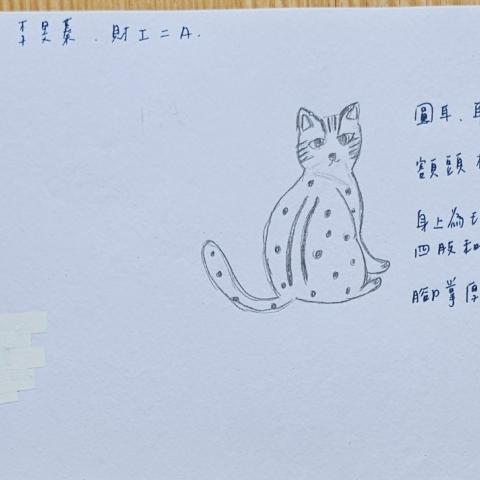 李昊蓁．財工二A.
圓耳．
額頭
身上為
四肢和
腳掌厚